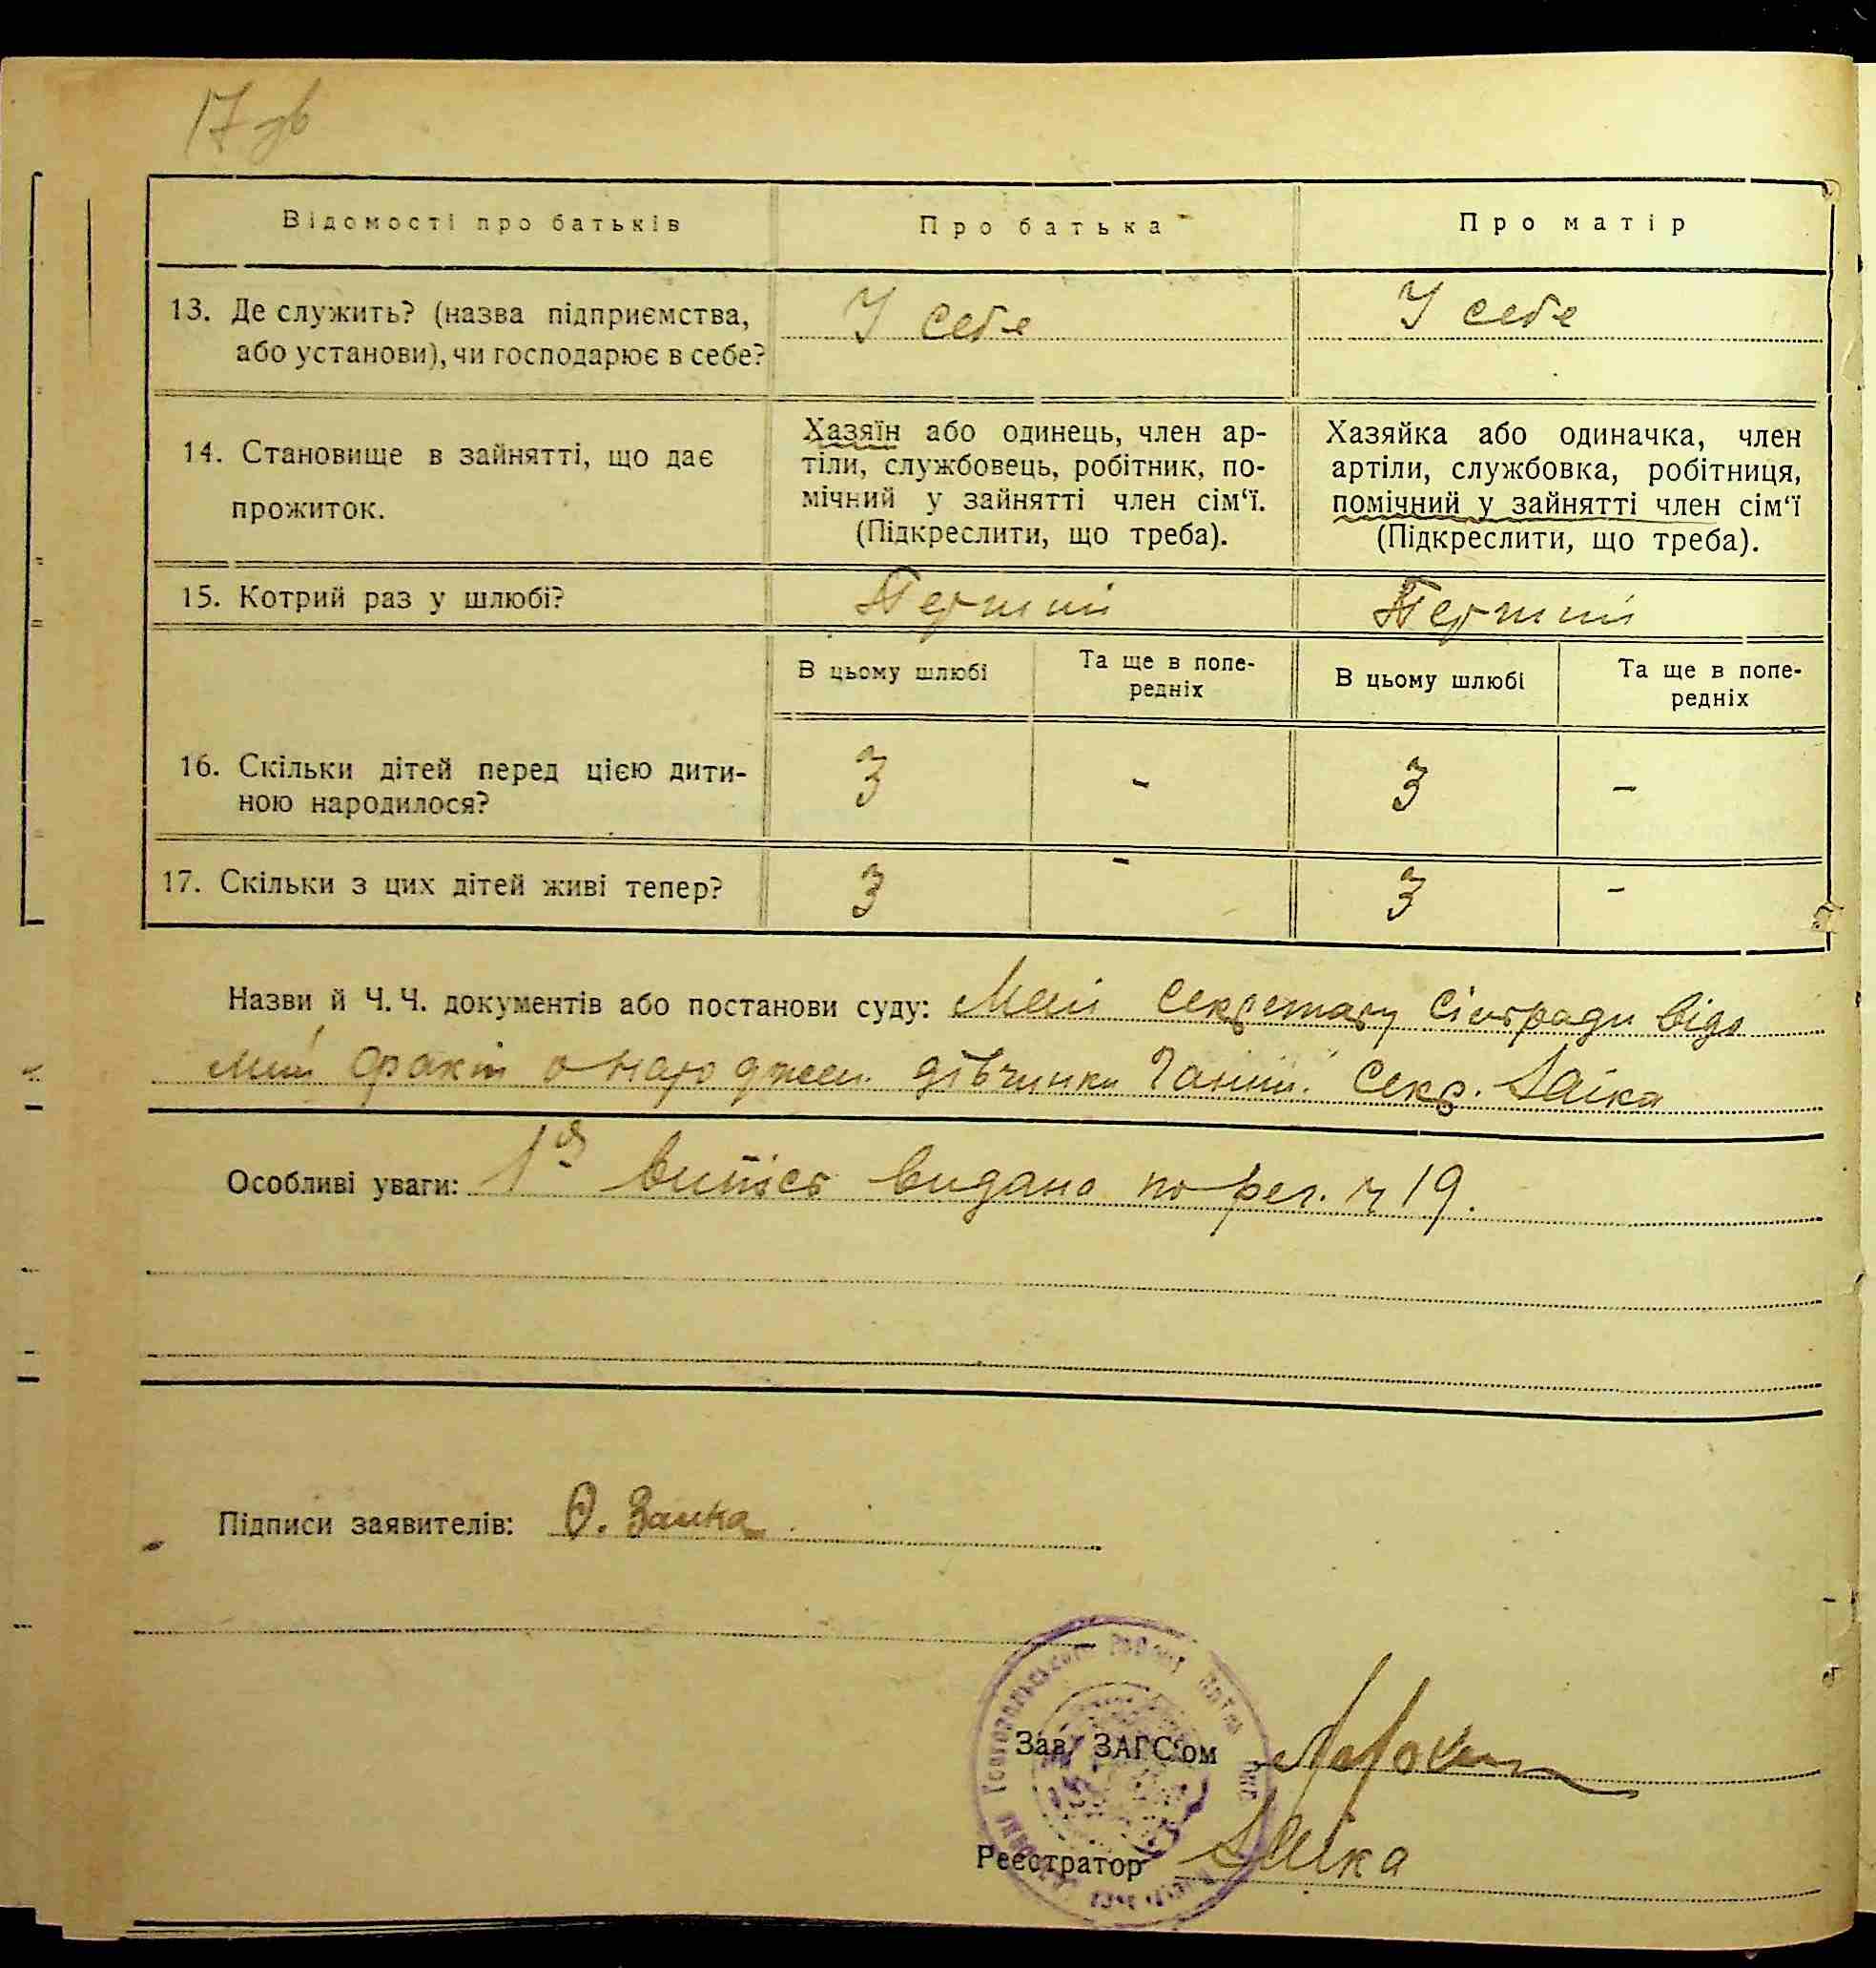 17 зв
Відомості про батьків
Про батька
Про матір
13. Де служить? (назва підприємства,
або установи), чи господарює в себе?
У себе
У себе
14. Становище в зайнятті, що дає
прожиток.
Хазяїн або одинець, член ар-
тіли, службовець, робітник, по-
мічний у зайнятті член сім‘ї.
(Підкреслити, що треба).
Хазяйка або одиначка, член
артіли, службовка, робітниця,
помічний у зайнятті член сім‘ї
(Підкреслити, що треба).
15. Котрий раз у шлюбі?
Перший
Перший
В цьому шлюбі
Та ще в попе-
редніх
В цьому шлюбі
Та ще в попе-
редніх
16. Скільки дітей перед цією дити-
ною народилося?
3
-
3
-
17. Скільки з цих дітей живі тепер?
3
-
3
-
Назви й Ч. Ч. документів або постанови суду: Мені секретару сільради відо
мий факт о народжен. дівчинки Ганни. Секр. Заіка
Особливі уваги: 1й випис видано по рег. ч 19.
Підписи заявителів: О. Заика
Зав. ЗАГС‘ом
Реєстратор Заіка